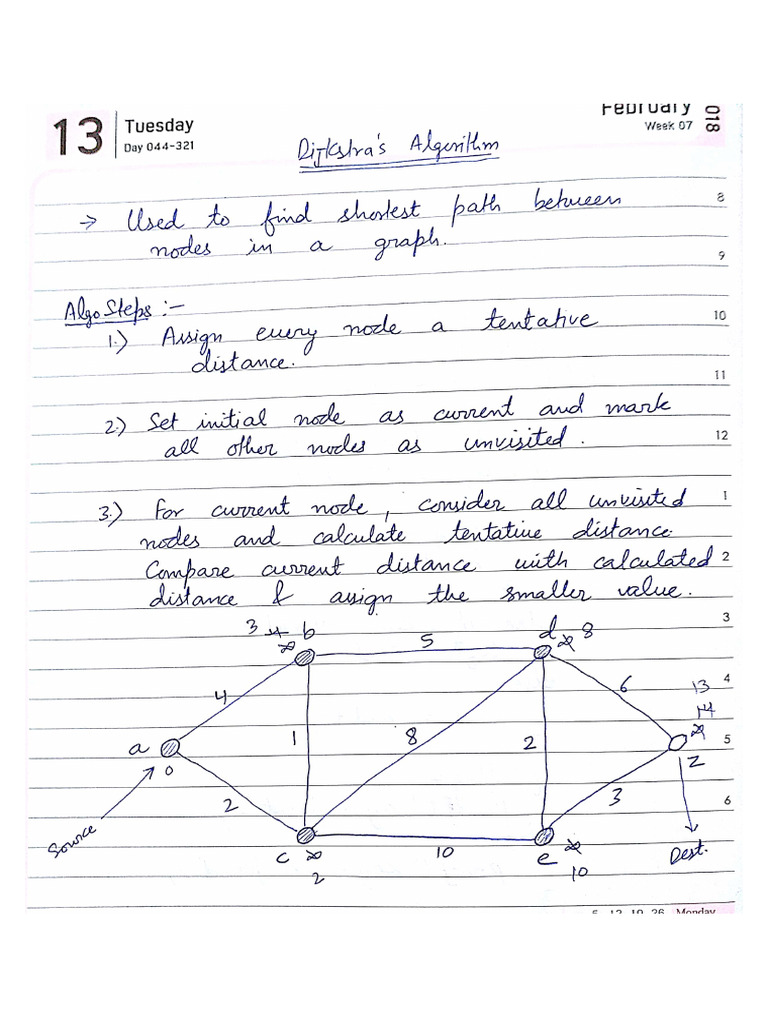 13 Tuesday
Day 044-321
February
Week 07
018
Dijkstra's Algorithm
→ Used to find shortest path between
nodes in a graph.
Algo Steps :-
1.) Assign every node a tentative
distance.
2.) Set initial node as current and mark
all other nodes as unvisited.
3.) For current node, consider all unvisited
nodes and calculate tentative distance.
Compare current distance with calculated
distance & assign the smaller value.
8
9
10
11
12
1
2
3
4
5
6
3 4 b
∞
5
d 8
∞
4
6
13
14
∞
a
0
1
8
2
Z
2
3
Source
c ∞
2
10
e ∞
10
Dest.
5 12 19 26 Monday